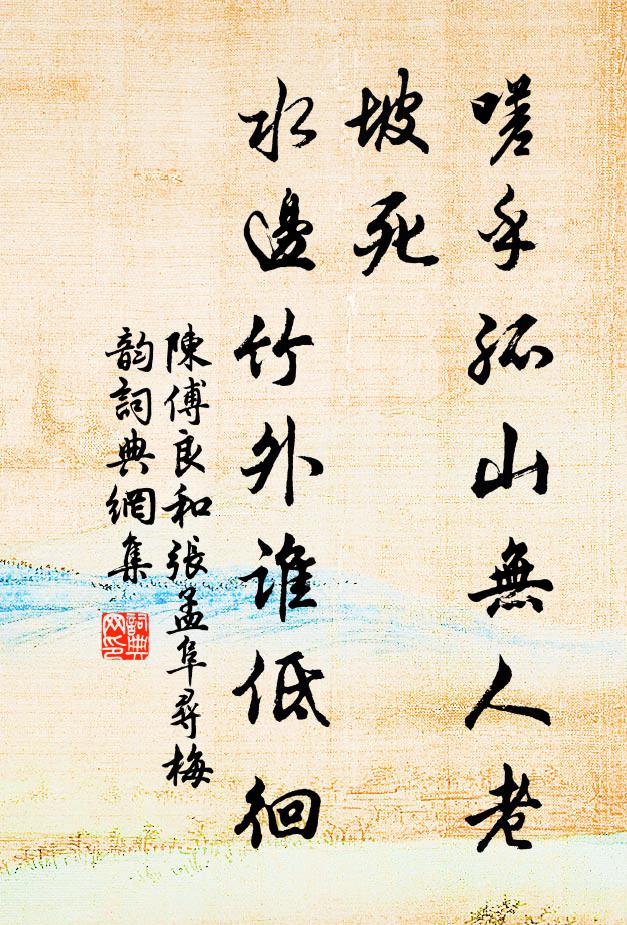 嗟乎孤山無人老
坡死
水邊竹外誰低徊
陳傅良和張孟阜尋梅
韵詞典網集
詞典
网印